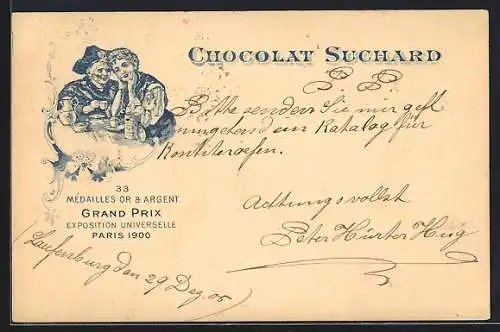 CHOCOLAT SUCHARD
P. P.
Bitte senden Sie mir gefl
umgehend ein Katalog für
Konditoreien.
33
MÉDAILLES OR & ARGENT
GRAND PRIX
EXPOSITION UNIVERSELLE
PARIS 1900
Achtungsvollst
Peter Hürter Hug
Laufenburg den 29 Dez. 05